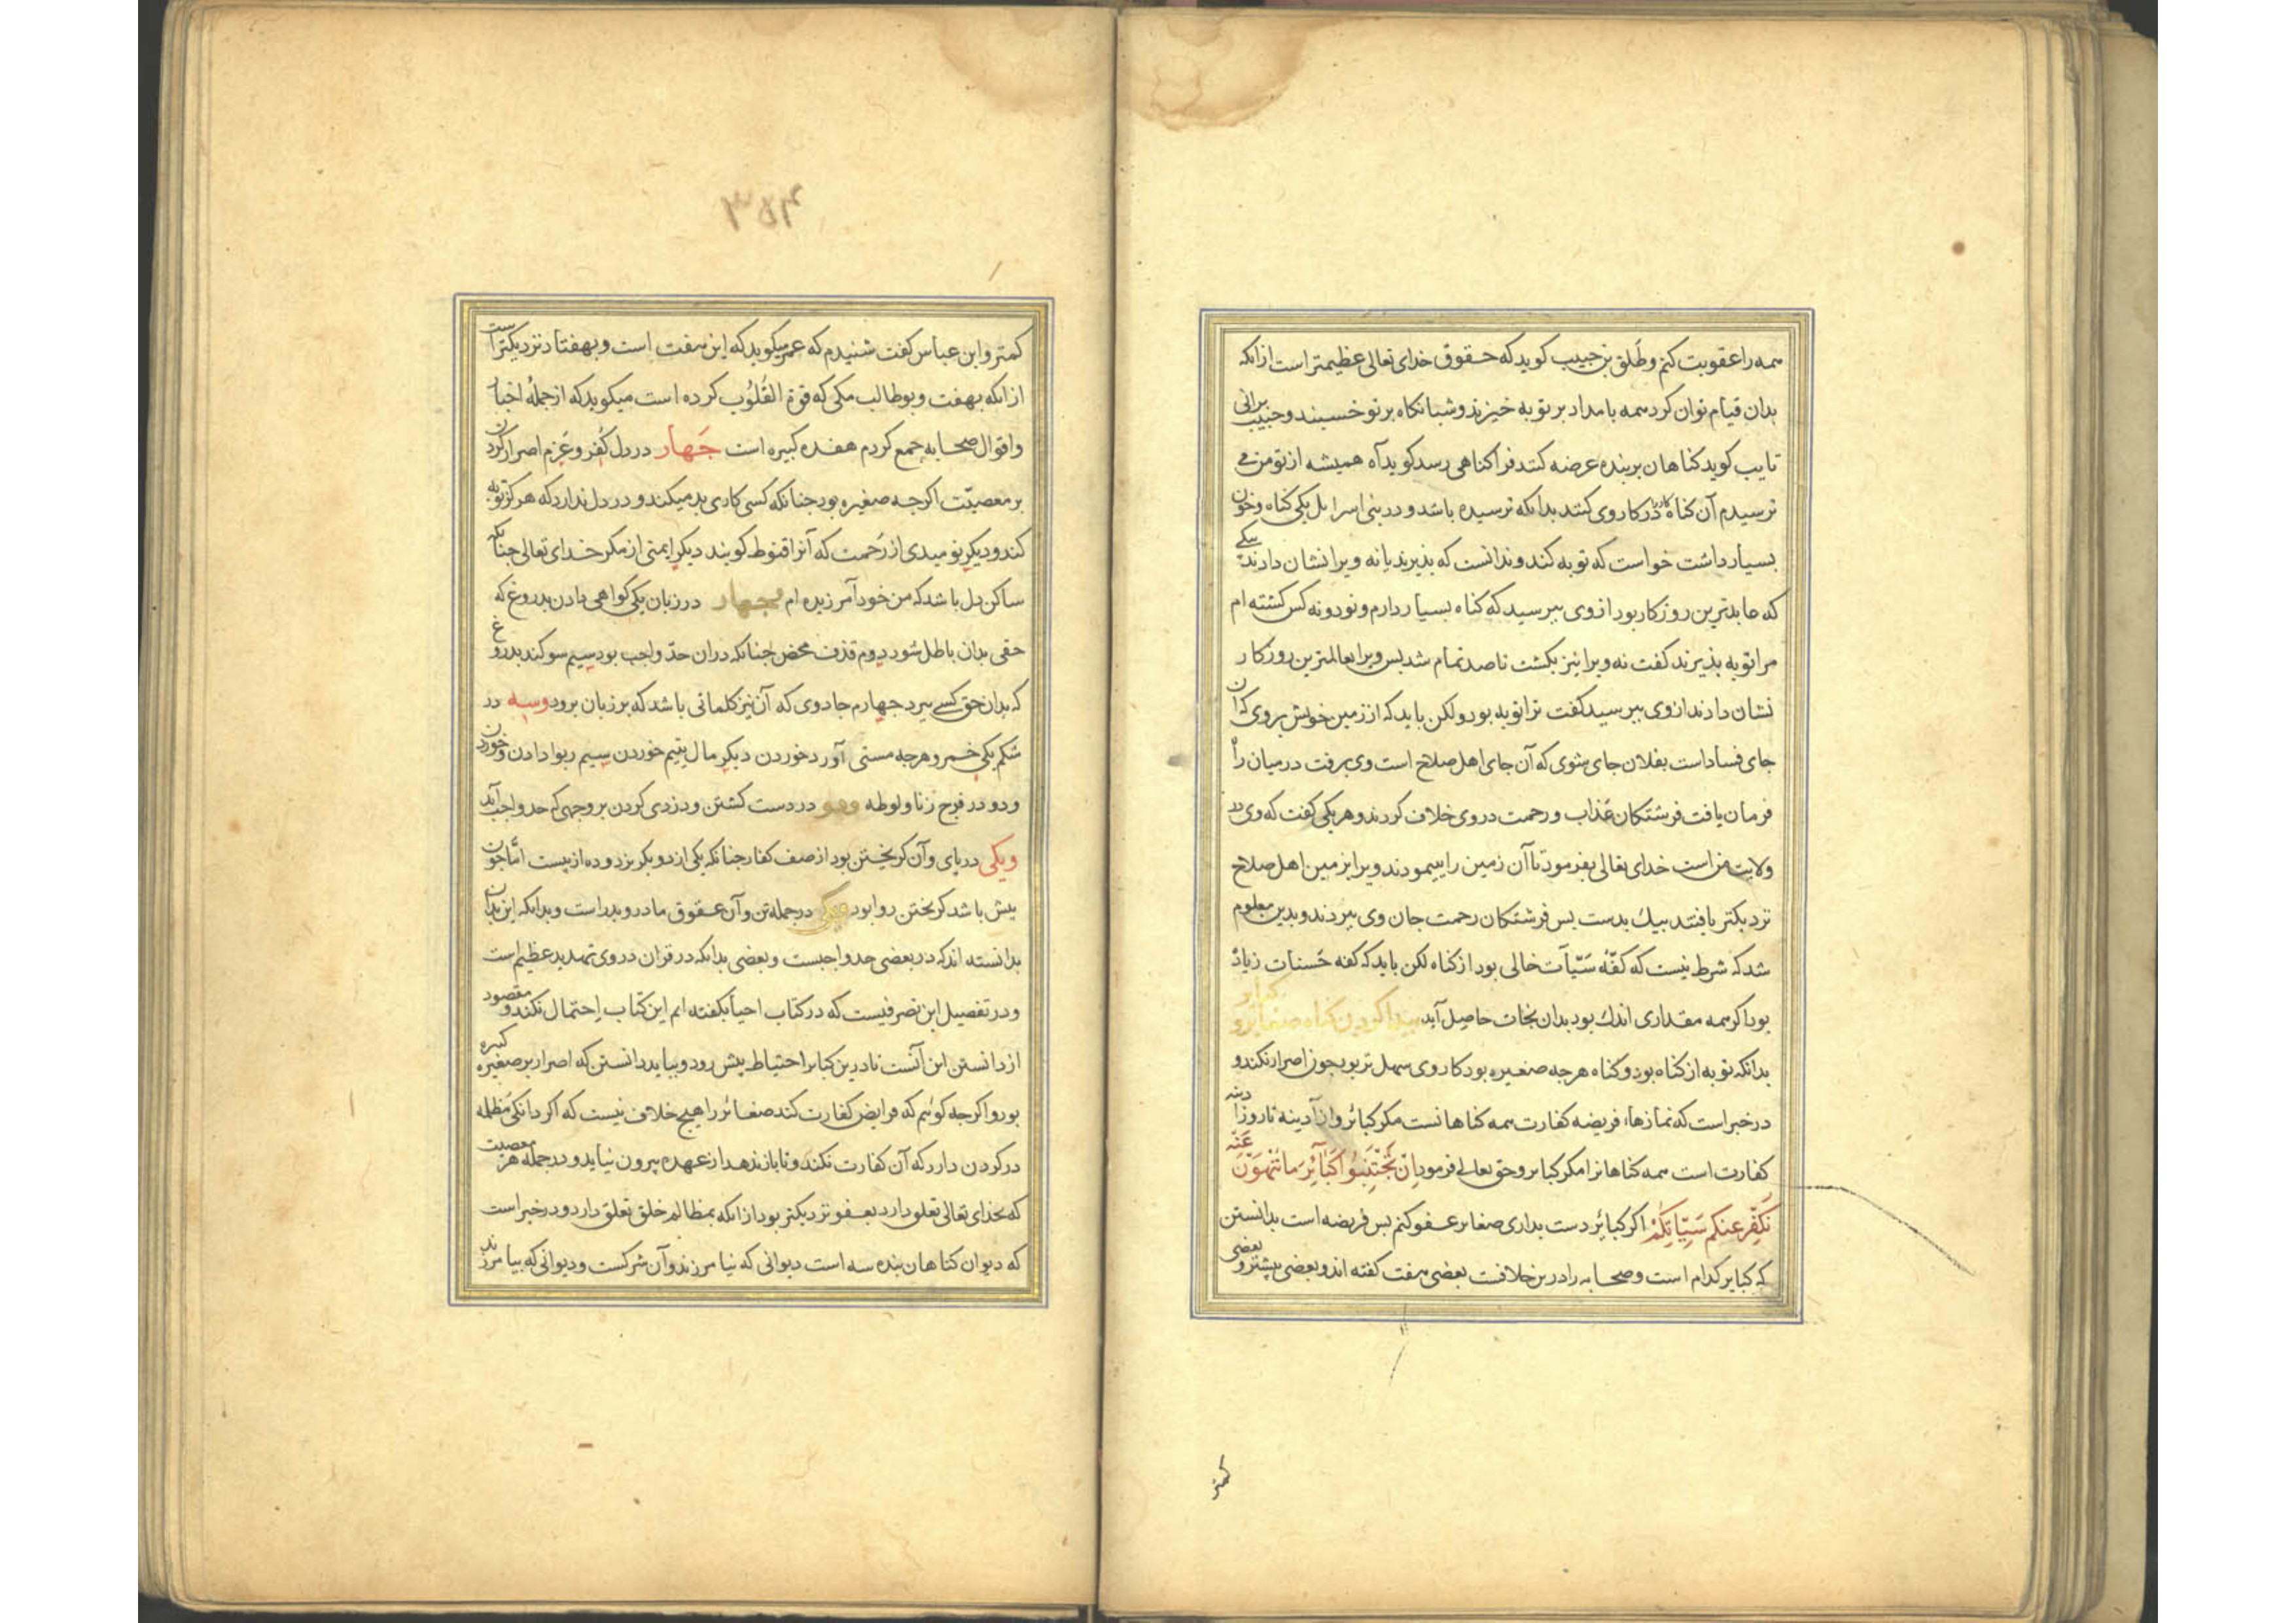 همه را عقوبت کنم و طَلق بن حبیب کوید که حقوق خدای تعالی عظیمتر است از انکه
بدان قیام توان کرد همه بامداد بر توبه خیزند و شبانکاه بر توبه خسبند و حبیب برانی
تایب کوید کناهان بر بنده عرضه کنند فرا کناهی رسد کوید آه همیشه از تو من می
ترسیدم آن کناه در کار وی کنند بدانکه ترسیده باشد و در بنی اسرایل یکی کناه و خون
بسیار داشت خواست که توبه کند و ندانست که بذیرند یا نه ویرا نشان دادند بیکی
که عابدترین روزکار بود از وی ببرسید که کناه بسیار دارم و نود و نه کس کشته ام
مرا توبه بذیرند کفت نه ویرا نیز بکشت تا صد تمام شد بس ویرا بعالمترین روزکار
نشان دادند از وی ببرسید کفت ترا توبه بود ولکن باید که از زمین خویش بروی که ان
جای فساد است بفلان جای شوی که آن جای اهل صلاح است وی برفت در میان راه
فرمان یافت فرشتکان عَذاب و رحمت در وی خلاف کردند و هر یکی کفت که وی در
ولایت من است خدای تعالی بفرمود تا آن زمین را بیمودند ویرا بزمین اهل صلاح
نزدیکتر یافتند بیك بدست بس فرشتکان رحمت جان وی ببردند و بدین معلوم
شد که شرط نیست که کفّهٔ سَیّآت خالی بود از کناه لکن باید که کفه حَسنات زیاده
بود اکر همه مقداری اندك بود بدان نجات حاصل آید بیدا کردن کناه صغایر و کبایر
بدانکه توبه از کناه بود و کناه هرجه صغیره بود کار وی سهل تر بود جون اصرار نکند و
در خبر است که نمازهاء فریضه کفارت همه کناهانست مکر کبائر و از آدینه تا روز ادینه
کفارت است همه کناهانرا مکر کبایر و حق تعالے فرمود اِنْ تَجْتَنِبُوا کَبَآئِرَ مَا تُنْهَوْنَ عَنْهُ
نُکَفِّرْ عَنکُم سَیِّاٰتِکُمْ اکر کبائر دست بداری صغایر عفو کنم بس فریضه است بدانستن
که کبایر کدام است و صحابه را درین خلافست بعضی هفت کفته اند و بعضی بیشتر و بعضی
کمتر
کمتر و ابن عباس کفت شنیدم که عمر میکوید که این هفت است و بهفتاد نزدیکتر است
از انکه بهفت و بوطالب مکی که قوة القُلُوب کرده است میکوید که از جملهٔ اخبار
و اقوال صحابه جمع کردم هفده کبیره است جَهار در دل کُفر و عَزم اصرار کردن
بر معصیّت اکرجه صغیره بود جنانکه کسی کاری بد میکند و در دل ندارد که هرکز توبه
کند و دیکر نومیدی از رَحمت که آنرا قنوط کویند دیکر ایمنی از مکر خدای تعالی جنانکه
ساکن دل باشد که من خود آمرزیده ام جهار در زبان یکی کواهی دادن بدروغ که
حقی بدان باطل شود دوم قذف محض جنانکه دران حدّ واجب بود سیم سوکند بدروغ
که بدان حق کسے ببرد جهارم جادوی که آن نیز کلماتی باشد که بر زبان برود و سه در
شکم یکی خمر و هرجه مستی آورد خوردن دیکر مال یتیم خوردن سیم ربوا دادن و خوردن
و دو در فرج زنا و لوطه و دو در دست کشتن و دزدی کردن بر وجهی که حد واجب آید
و یکی در پای و آن کریختن بود از صف کفار جنانکه یکی از دو بکریزد و ده از بیست امّا جون
بیش باشد کریختن روا بود و یکی در جمله تن و آن عقوق مادر و بدر است و بدانکه این بدان
بدانسته اند که در بعضی حد واجبست و بعضی بدانکه در قران در وی تهدید عظیم است
و در تفصیل این تصرفیست که در کتاب احیا بکفته ایم این کتاب اِحتمال نکند و مقصود
از دانستن این آنست تا درین کبایر احتیاط بیش رود و بباید دانستن که اصرار بر صغیره کبیره
بود و اکرجه کوئیم که فرایض کفارت کند صغائر را هیج خلاف نیست که اکر دانکی مظلمه
در کردن دارد که آن کفارت نکند و تا باز ندهد از عهده بیرون نیاید و در جمله هر معصیت
که بخدای تعالی تعلق دارد بعفو نزدیکتر بود از انکه بمظالم خلق تعلق دارد و در خبر است
که دیوان کناهان بنده سه است دیوانی که نیامرزند و آن شرکست و دیوانی که بیامرزند